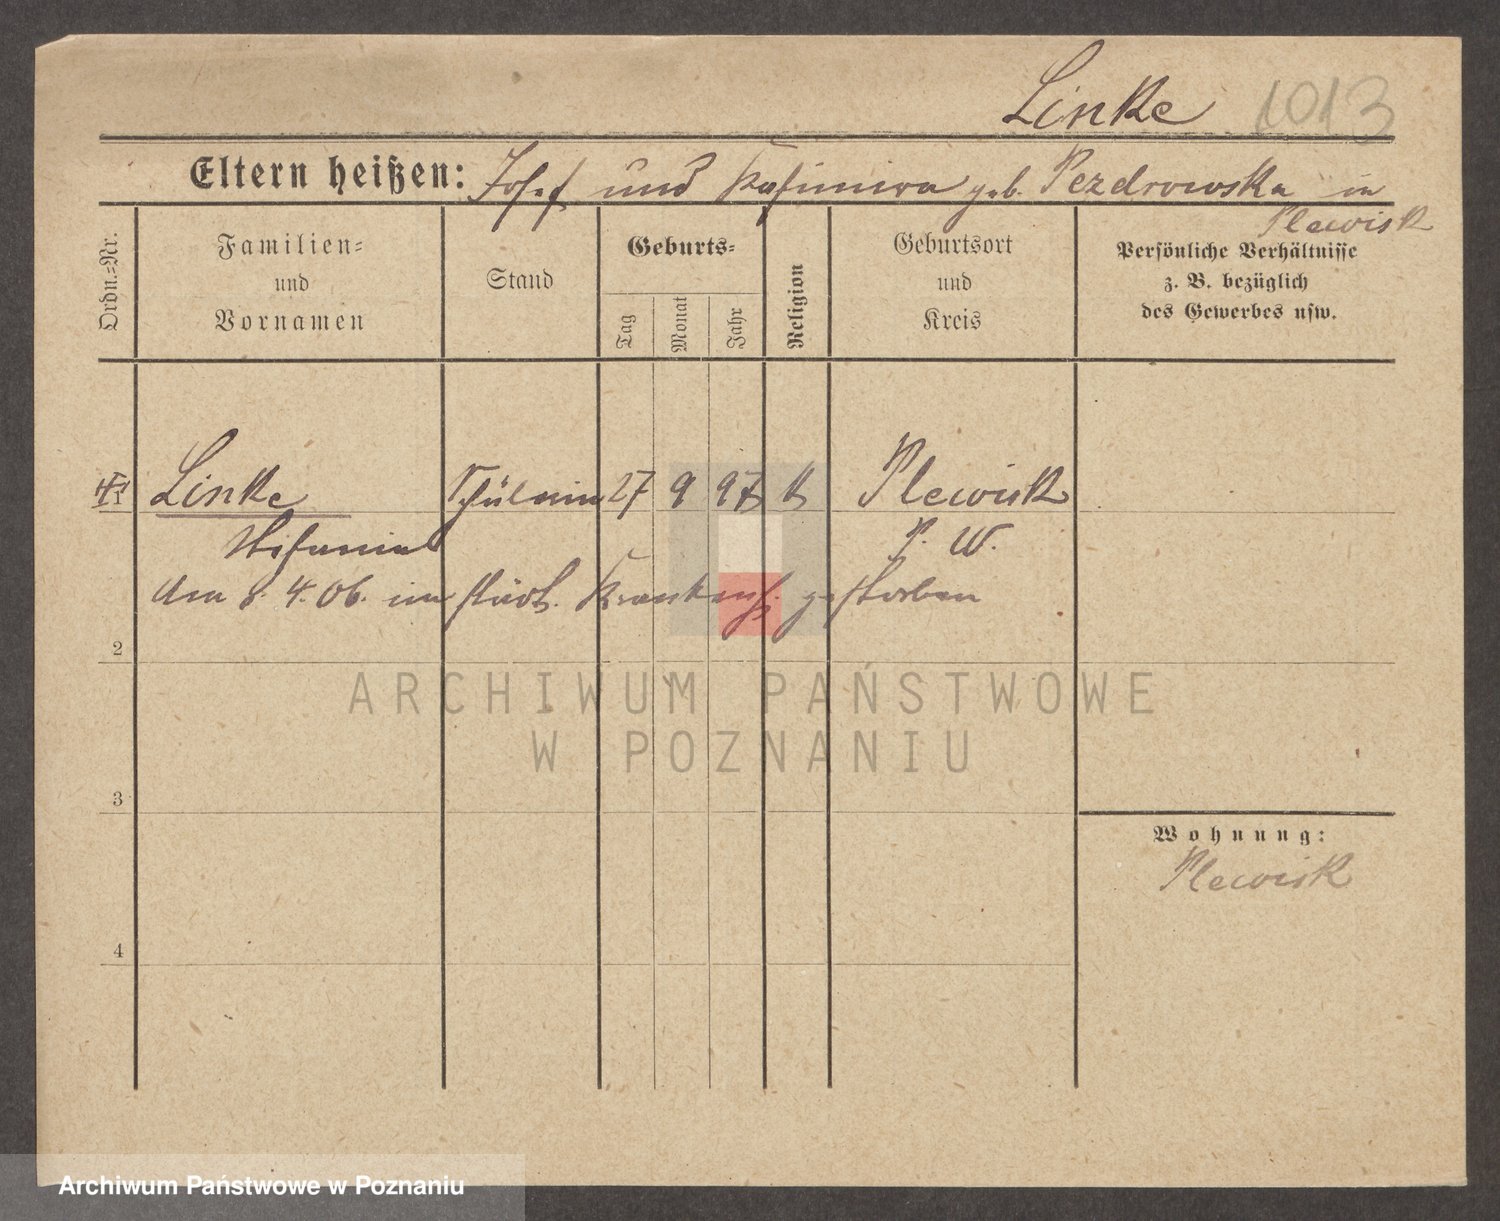 Linke 1013
Eltern heißen: Josef und Kasimira geb. Pezdrowska in
Plewisk
Ordn.=Nr.
Familien=
und
Vornamen
Stand
Geburts=
Tag
Monat
Jahr
Religion
Geburtsort
und
Kreis
Persönliche Verhältnisse
z. B. bezüglich
des Gewerbes usw.
1 Linke Schülerin 27 9 97 k Plewisk
Stefania P. W.
Am 8. 4. 06. im städt. Krankenh. gestorben
2
ARCHIWUM PAŃSTWOWE
W POZNANIU
3
Wohnung:
Plewisk
4
Archiwum Państwowe w Poznaniu